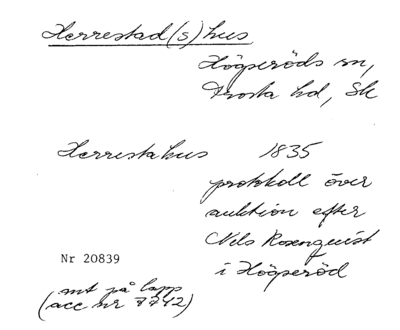 Herrestad(s)hus
Högseröds sn,
Frosta hd, Sk
Herrestahus 1835
protokoll över
auktion efter
Nels Rosenquist
i Högseröd
Nr 20839
mt på lapp
(acc nr 7742)